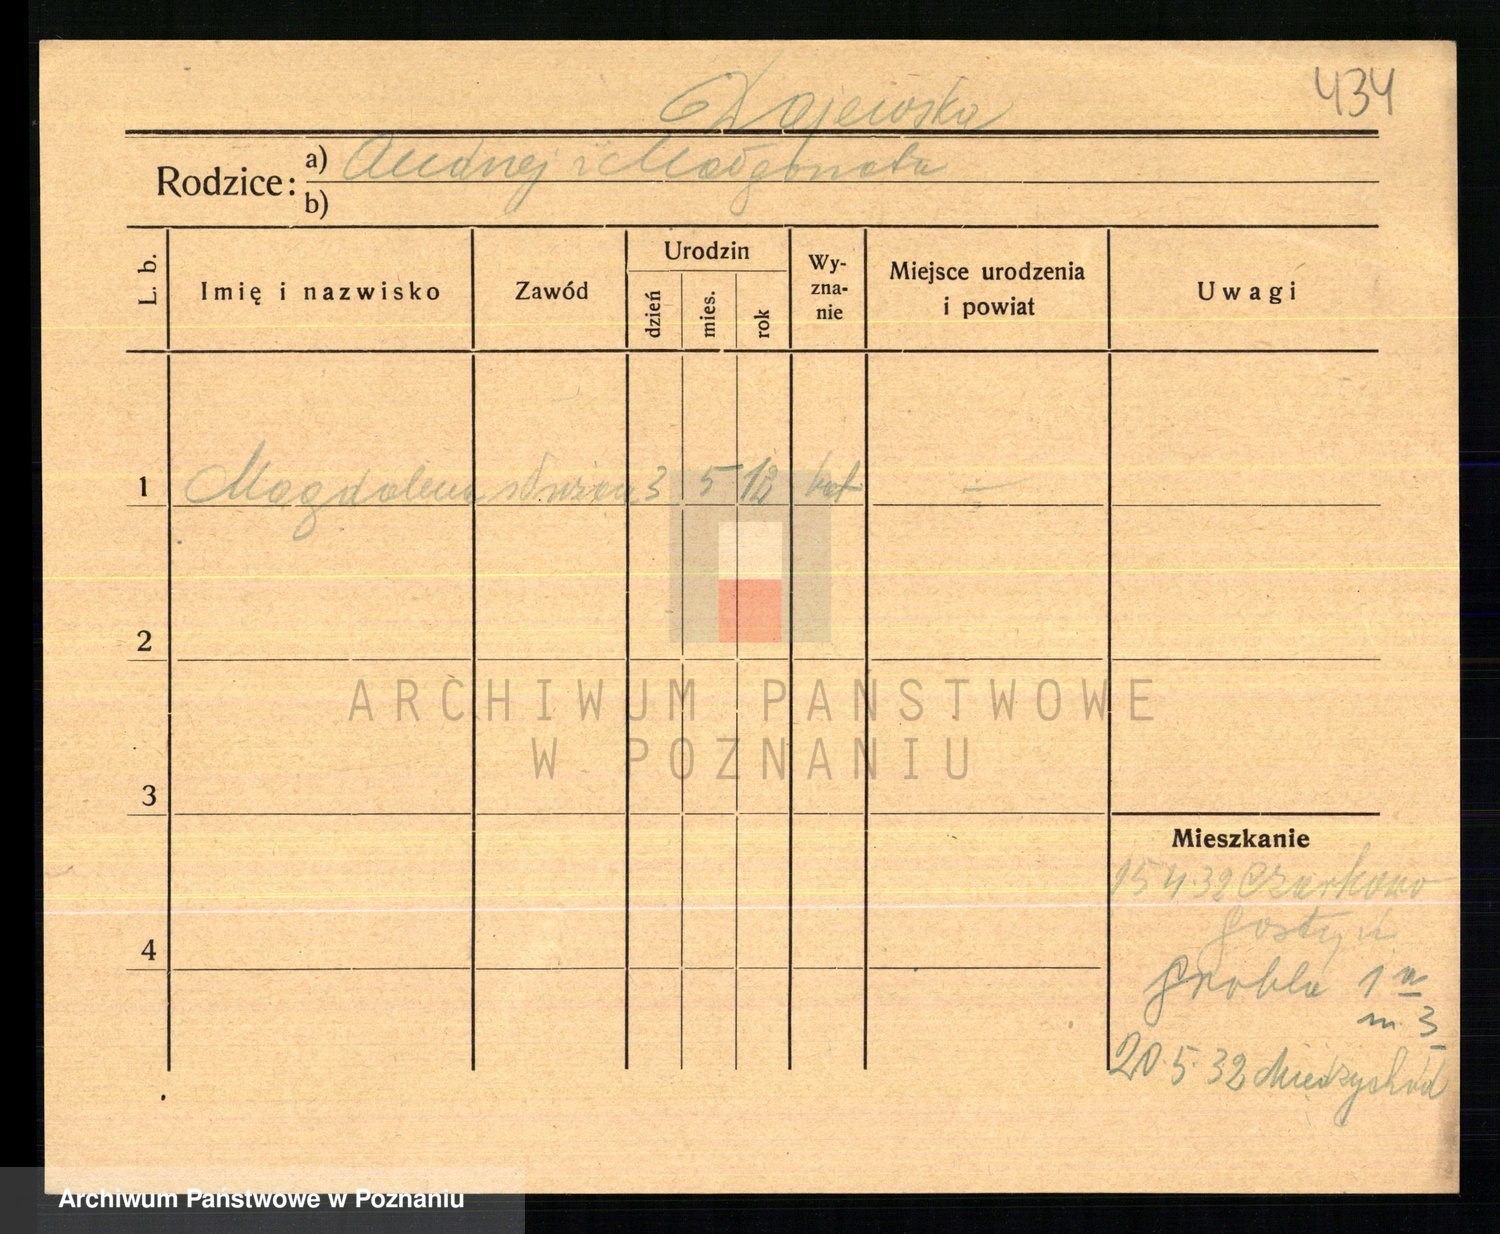 434
Dajewska
Rodzice: a) Andrzej i Małgorzata
b)
L. b.
Imię i nazwisko
Zawód
Urodzin
dzień
mies.
rok
Wy-
zna-
nie
Miejsce urodzenia
i powiat
Uwagi
1 Magdalena służąca 3 5 12 kat —
2
3
4
Mieszkanie
15 4 32 Czarkowo
Gostyń
Grobla 1a
m. 3
20.5.32 Międzychód
ARCHIWUM PAŃSTWOWE
W POZNANIU
Archiwum Państwowe w Poznaniu